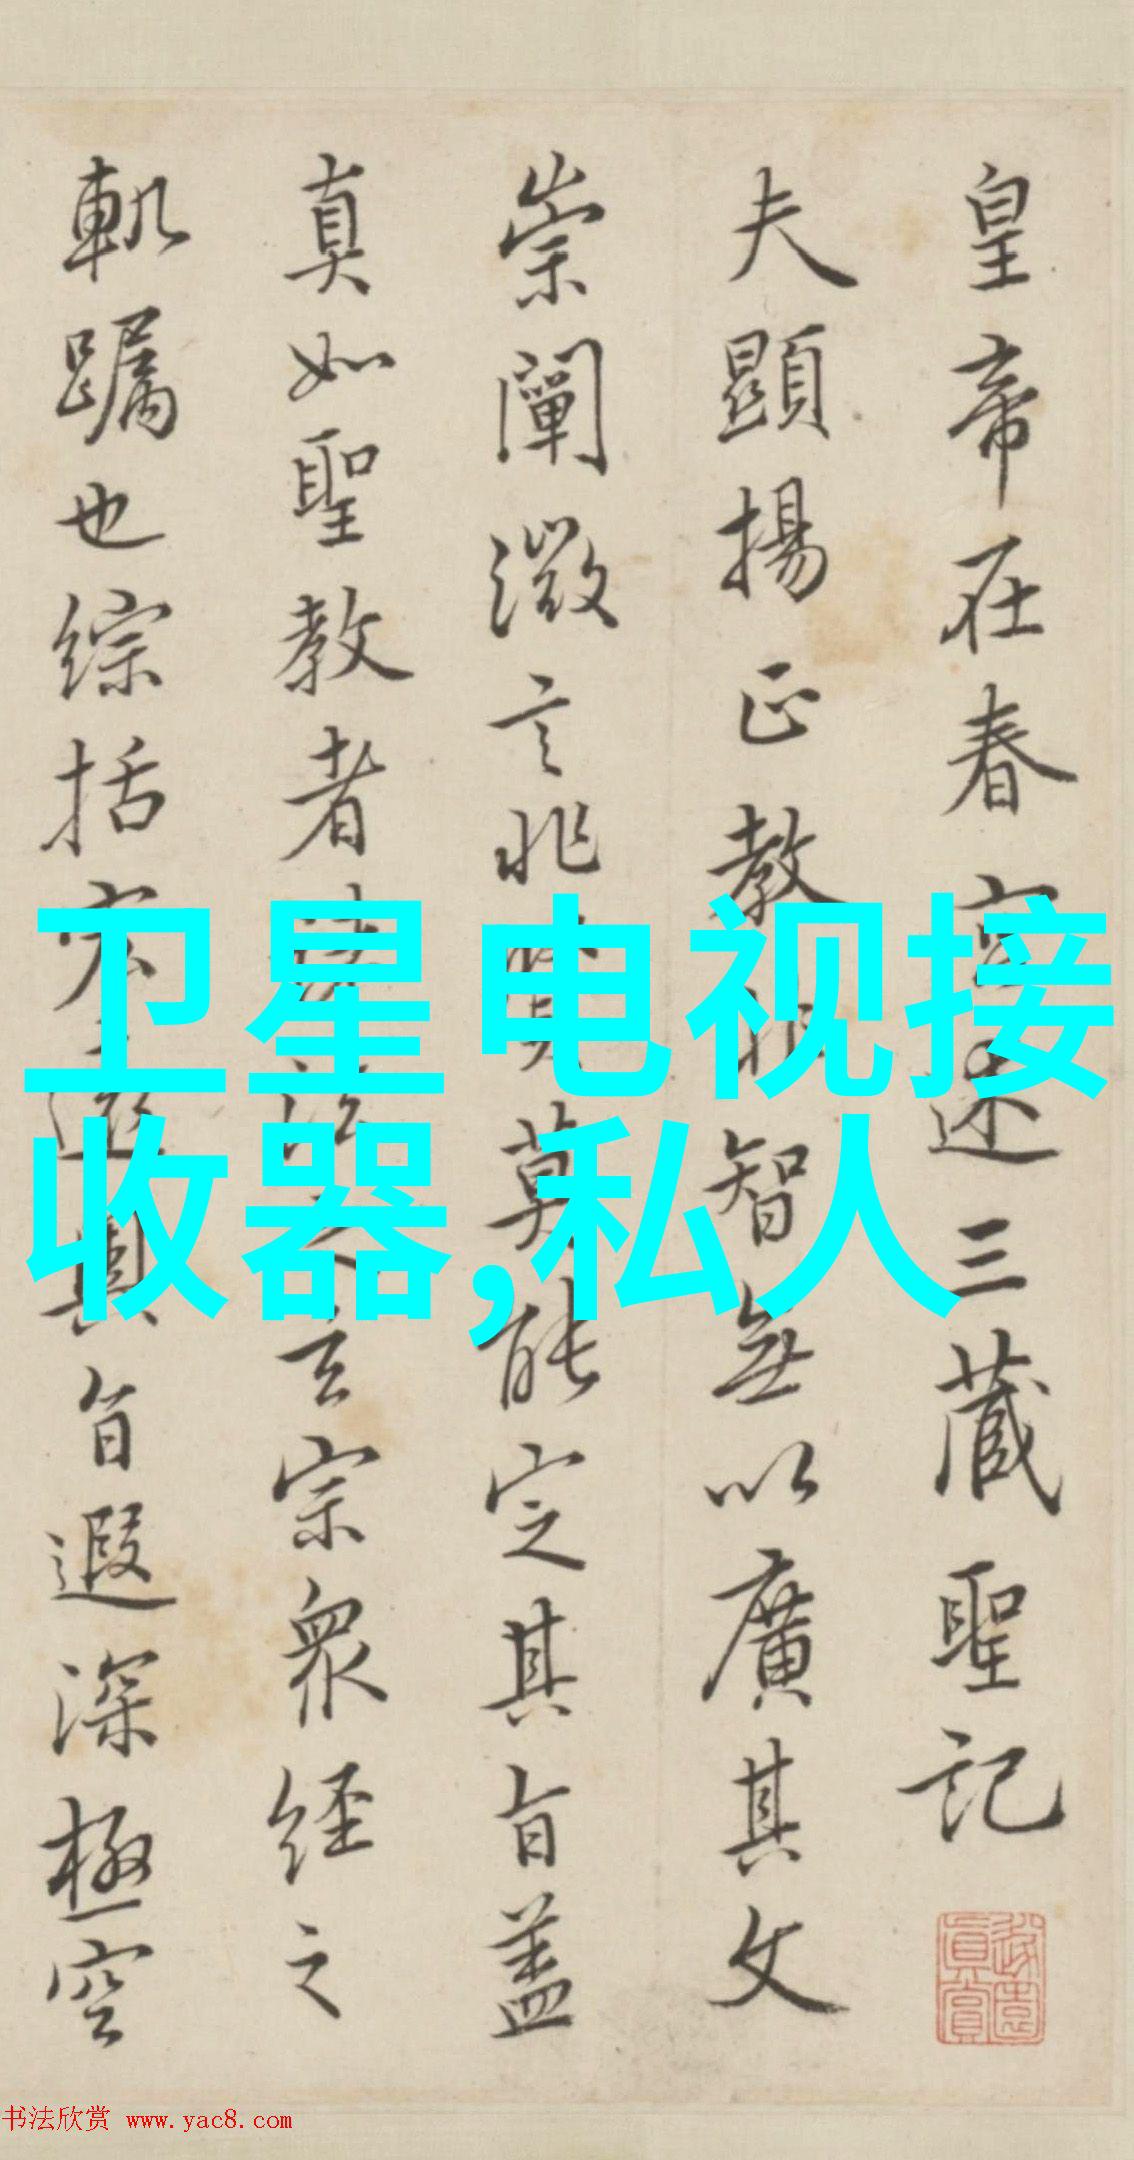 皇帝在春宮述三藏聖記
夫顯揚正教非智無以廣其文
崇闡微言非賢莫能定其旨蓋
真如聖教者諸法之玄宗眾經之
軌躅也綜括宏遠奧旨遐深極空
卫星电视接
收器,私人
书法欣赏 www.yac8.com